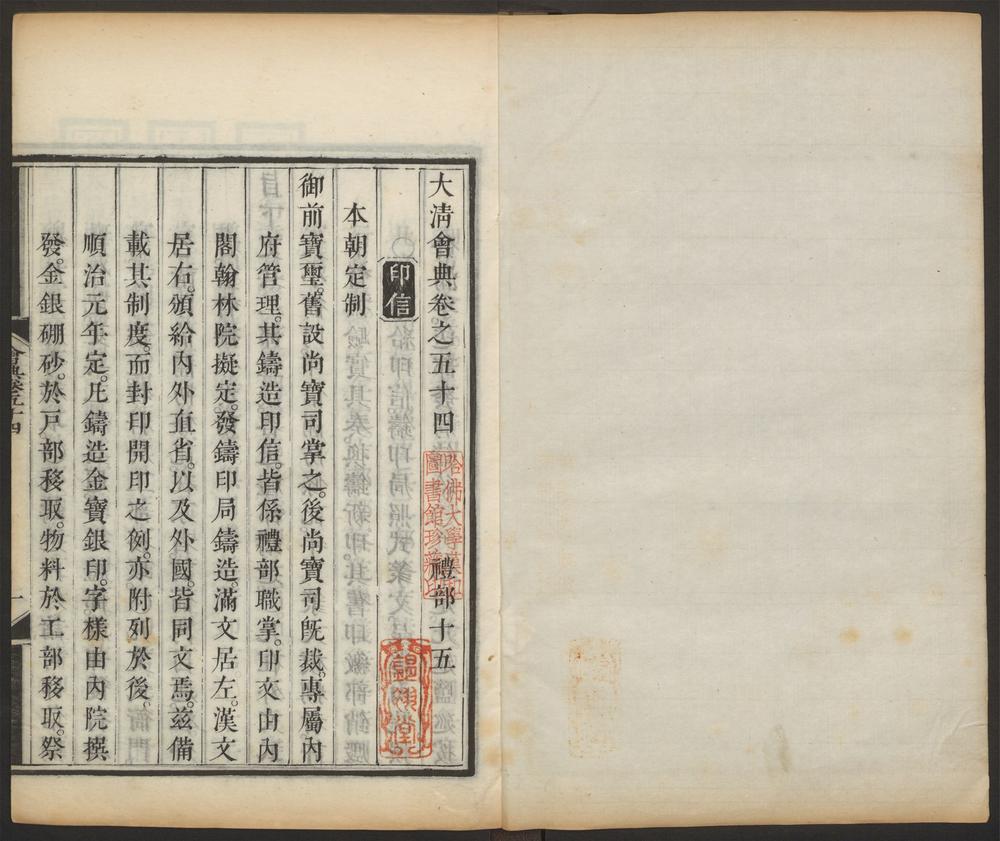 大淸會典卷之五十四 禮部十五
印信
本朝定制
御前寶璽。舊設尚寶司掌之。後尚寶司旣裁。專屬內
府管理。其鑄造印信。皆係禮部職掌。印文由內
閣翰林院擬定。發鑄印局鑄造。滿文居左。漢文
居右。頒給內外直省。以及外國。皆同文焉。茲備
載其制度。而封印開印之例。亦附列於後。
順治元年定。凡鑄造金寶銀印。字樣由內院撰
發。金銀硼砂。於戸部移取。物料於工部移取。祭
會典卷五十四
一
哈佛大學漢和
圖書館珍藏印